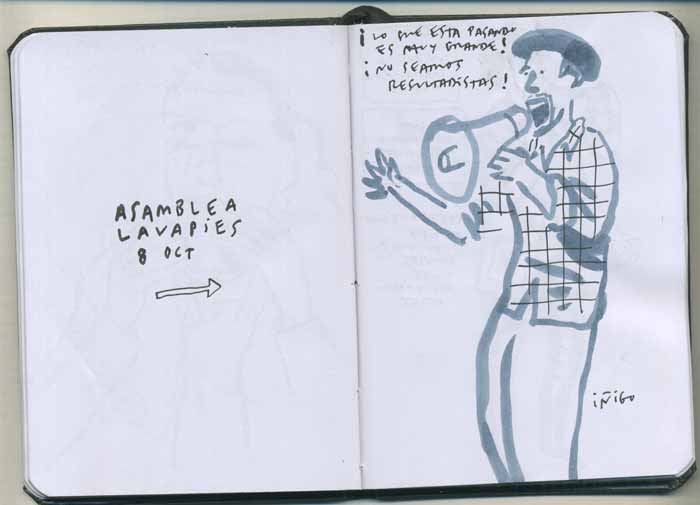 ASAMBLEA
LAVAPIES
8 OCT
¡LO QUE ESTA PASANDO
ES MUY GRANDE!
¡NO SEAMOS
RESULTADISTAS!
iÑiGO